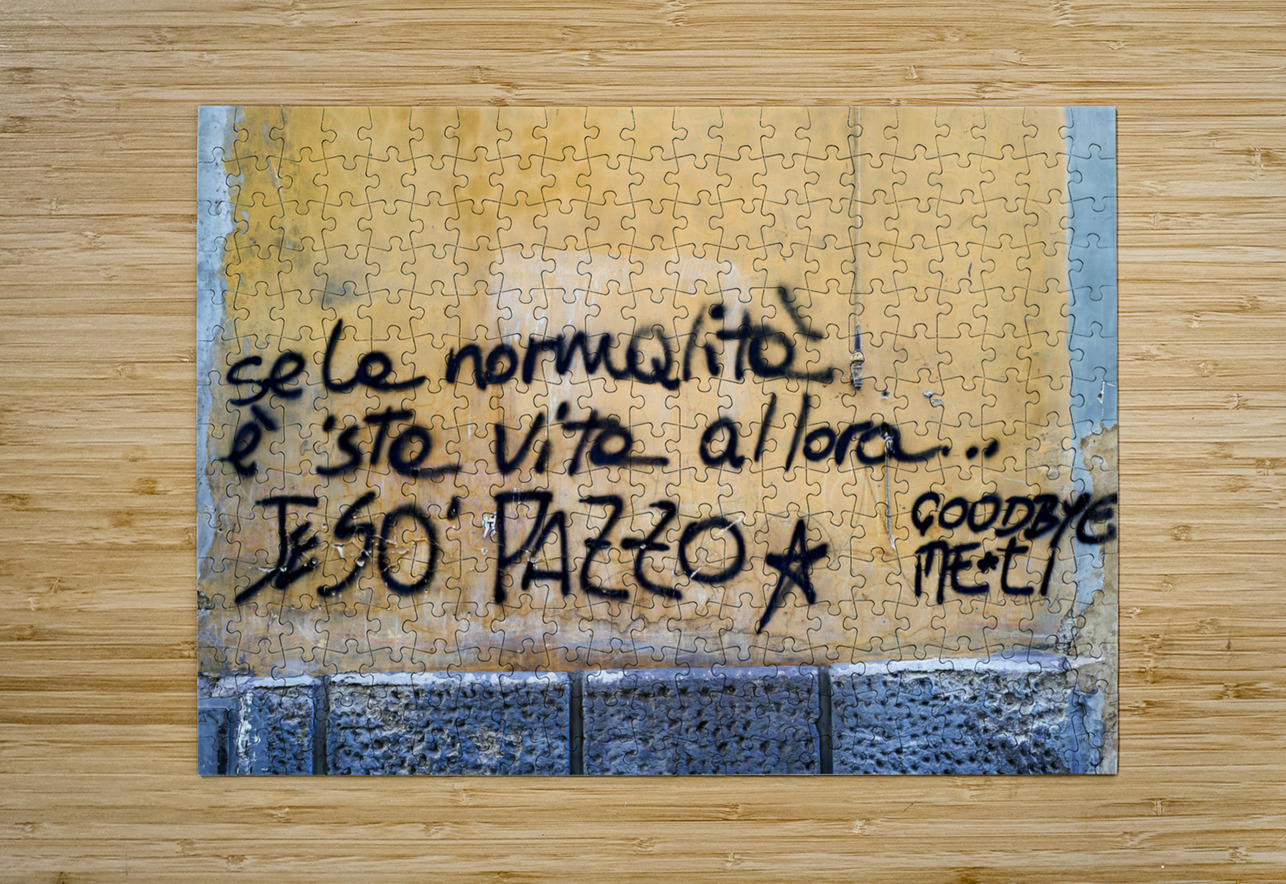 se la normalità
è 'sta vita allora...
JESO' PAZZO
GOODBYE
ME*TI